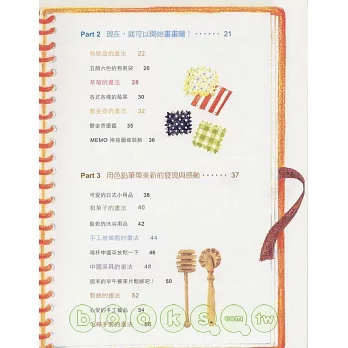 Part 2 現在，就可以開始畫畫囉！‥‥‥ 21
五顏六色的包袱袋 26
草莓的畫法 28
各式各樣的莓果 30
32
鬱金香圖鑑 35
MEMO 用插圖做裝飾 36
Part 3 用色鉛筆帶來新的發現與感動‥‥‥ 37
可愛的日式小用品 38
和菓子的畫法 40
藍色的沐浴用品 42
手工玻璃瓶的畫法 44
喝杯中國茶放鬆一下 46
中國茶具的畫法 48
週末的早午餐來片鬆餅吧！ 50
鬆餅的畫法 52
心愛的手工藝品 54
毛線手套的畫法 56
books.com.tw